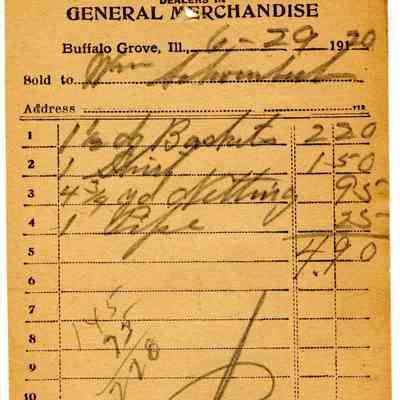 DEALERS IN
GENERAL MERCHANDISE
Buffalo Grove, Ill., 6-29 19120
Sold to Wm
Address
1 1 ½ dz Baskets 2 20
2 1 1 50
3 4 ¾ yd Netting 95
4 1 Pipe 25
5 4.90
6
7
8
9
10
145
75
220